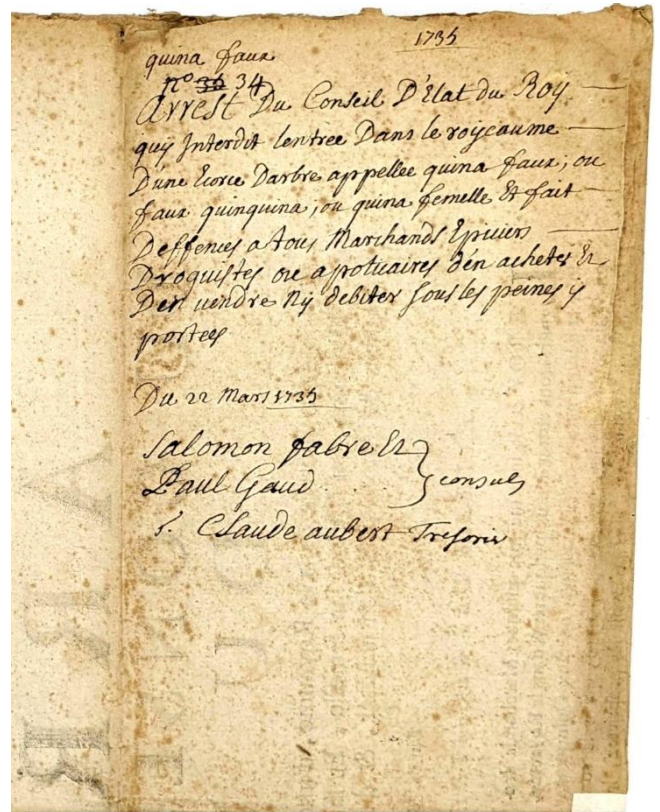 1735
quina faux
n° 36 34
Arrest Du Conseil D'Etat du Roy
quy Interdit lentree Dans le royeaume
Dune Ecorce Darbre appellee quina faux, ou
faux quinquina, ou quina femelle Et fait
Deffences a tous Marchands Epiciers
Droguistes ou apoticaires den acheter Et
Den vendre ny debiter sous les peines y
portees
Du 22 Mars 1735
Salomon fabre Et
Paul Gaud } consuls
s. Claude aubert Tresorier